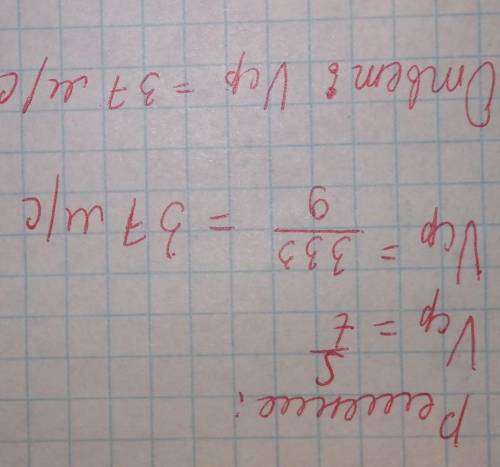 Решение:
Vср = S/t
Vср = 333/9 = 37 м/с
Ответ: Vср = 37 м/с